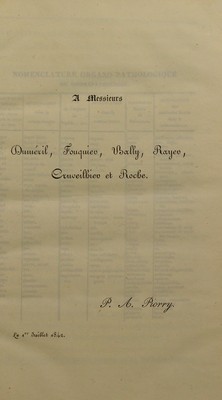 A Messieurs
Duméril, Fouquier, Bally, Rayer,
Cruveilhier et Roche.
P. A. Piorry.
Le 1er Juillet 1841.